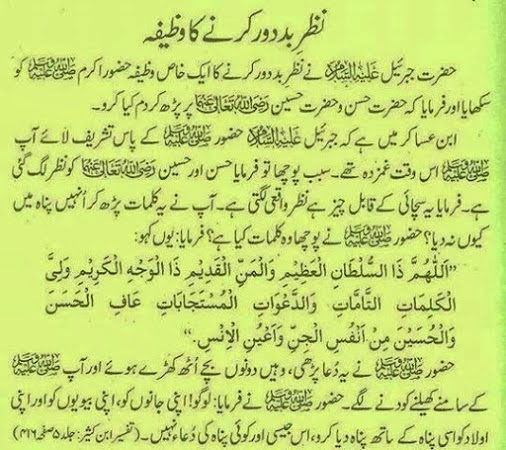 نظرِ بد دور کرنے کا وظیفہ
حضرت جبرئیل عَلَیْہِ السَّلَام نے نظرِ بد دور کرنے کا ایک خاص وظیفہ حضور اکرم صلی اللہ علیہ وسلم کو
سکھایا اور فرمایا کہ حضرت حسن و حضرت حسین رضی اللہ تعالیٰ عنہما پر پڑھ کر دم کیا کرو۔
ابن عساکر میں ہے کہ جبرئیل علیہ السلام حضور صلی اللہ علیہ وسلم کے پاس تشریف لائے آپ
صلی اللہ علیہ وسلم اس وقت غمزدہ تھے۔ سبب پوچھا تو فرمایا حسن اور حسین رضی اللہ تعالیٰ عنہما کو نظر لگ گئی
ہے۔ فرمایا یہ سچائی کے قابل چیز ہے نظر واقعی لگتی ہے۔ آپ نے یہ کلمات پڑھ کر اُنہیں پناہ میں
کیوں نہ دیا؟ حضور صلی اللہ علیہ وسلم نے پوچھا وہ کلمات کیا ہے؟ فرمایا: یوں کہو:
”اَللّٰھُمَّ ذَا السُّلْطَانِ الْعَظِیْمِ وَالْمَنِّ الْقَدِیْمِ ذَا الْوَجْهِ الْکَرِیْمِ وَلِیَّ
الْکَلِمَاتِ التَّامَّاتِ وَالدَّعَوَاتِ الْمُسْتَجَابَاتِ عَافِ الْحَسَنَ
وَالْحُسَیْنَ مِنْ اَنْفُسِ الْجِنِّ وَاَعْیُنِ الْاِنْسِ۔“
حضور صلی اللہ علیہ وسلم نے یہ دُعا پڑھی، وہیں دونوں بچے اُٹھ کھڑے ہوئے اور آپ صلی اللہ علیہ وسلم
کے سامنے کھیلنے کودنے لگے۔ حضور صلی اللہ علیہ وسلم نے فرمایا: لوگو! اپنی جانوں کو، اپنی بیویوں کو اور اپنی
اولاد کو اسی پناہ کے ساتھ پناہ دیا کرو، اس جیسی اور کوئی پناہ کی دُعاء نہیں۔ (تفسیر ابن کثیر: جلد ۵ صفحہ ۴۱۶)